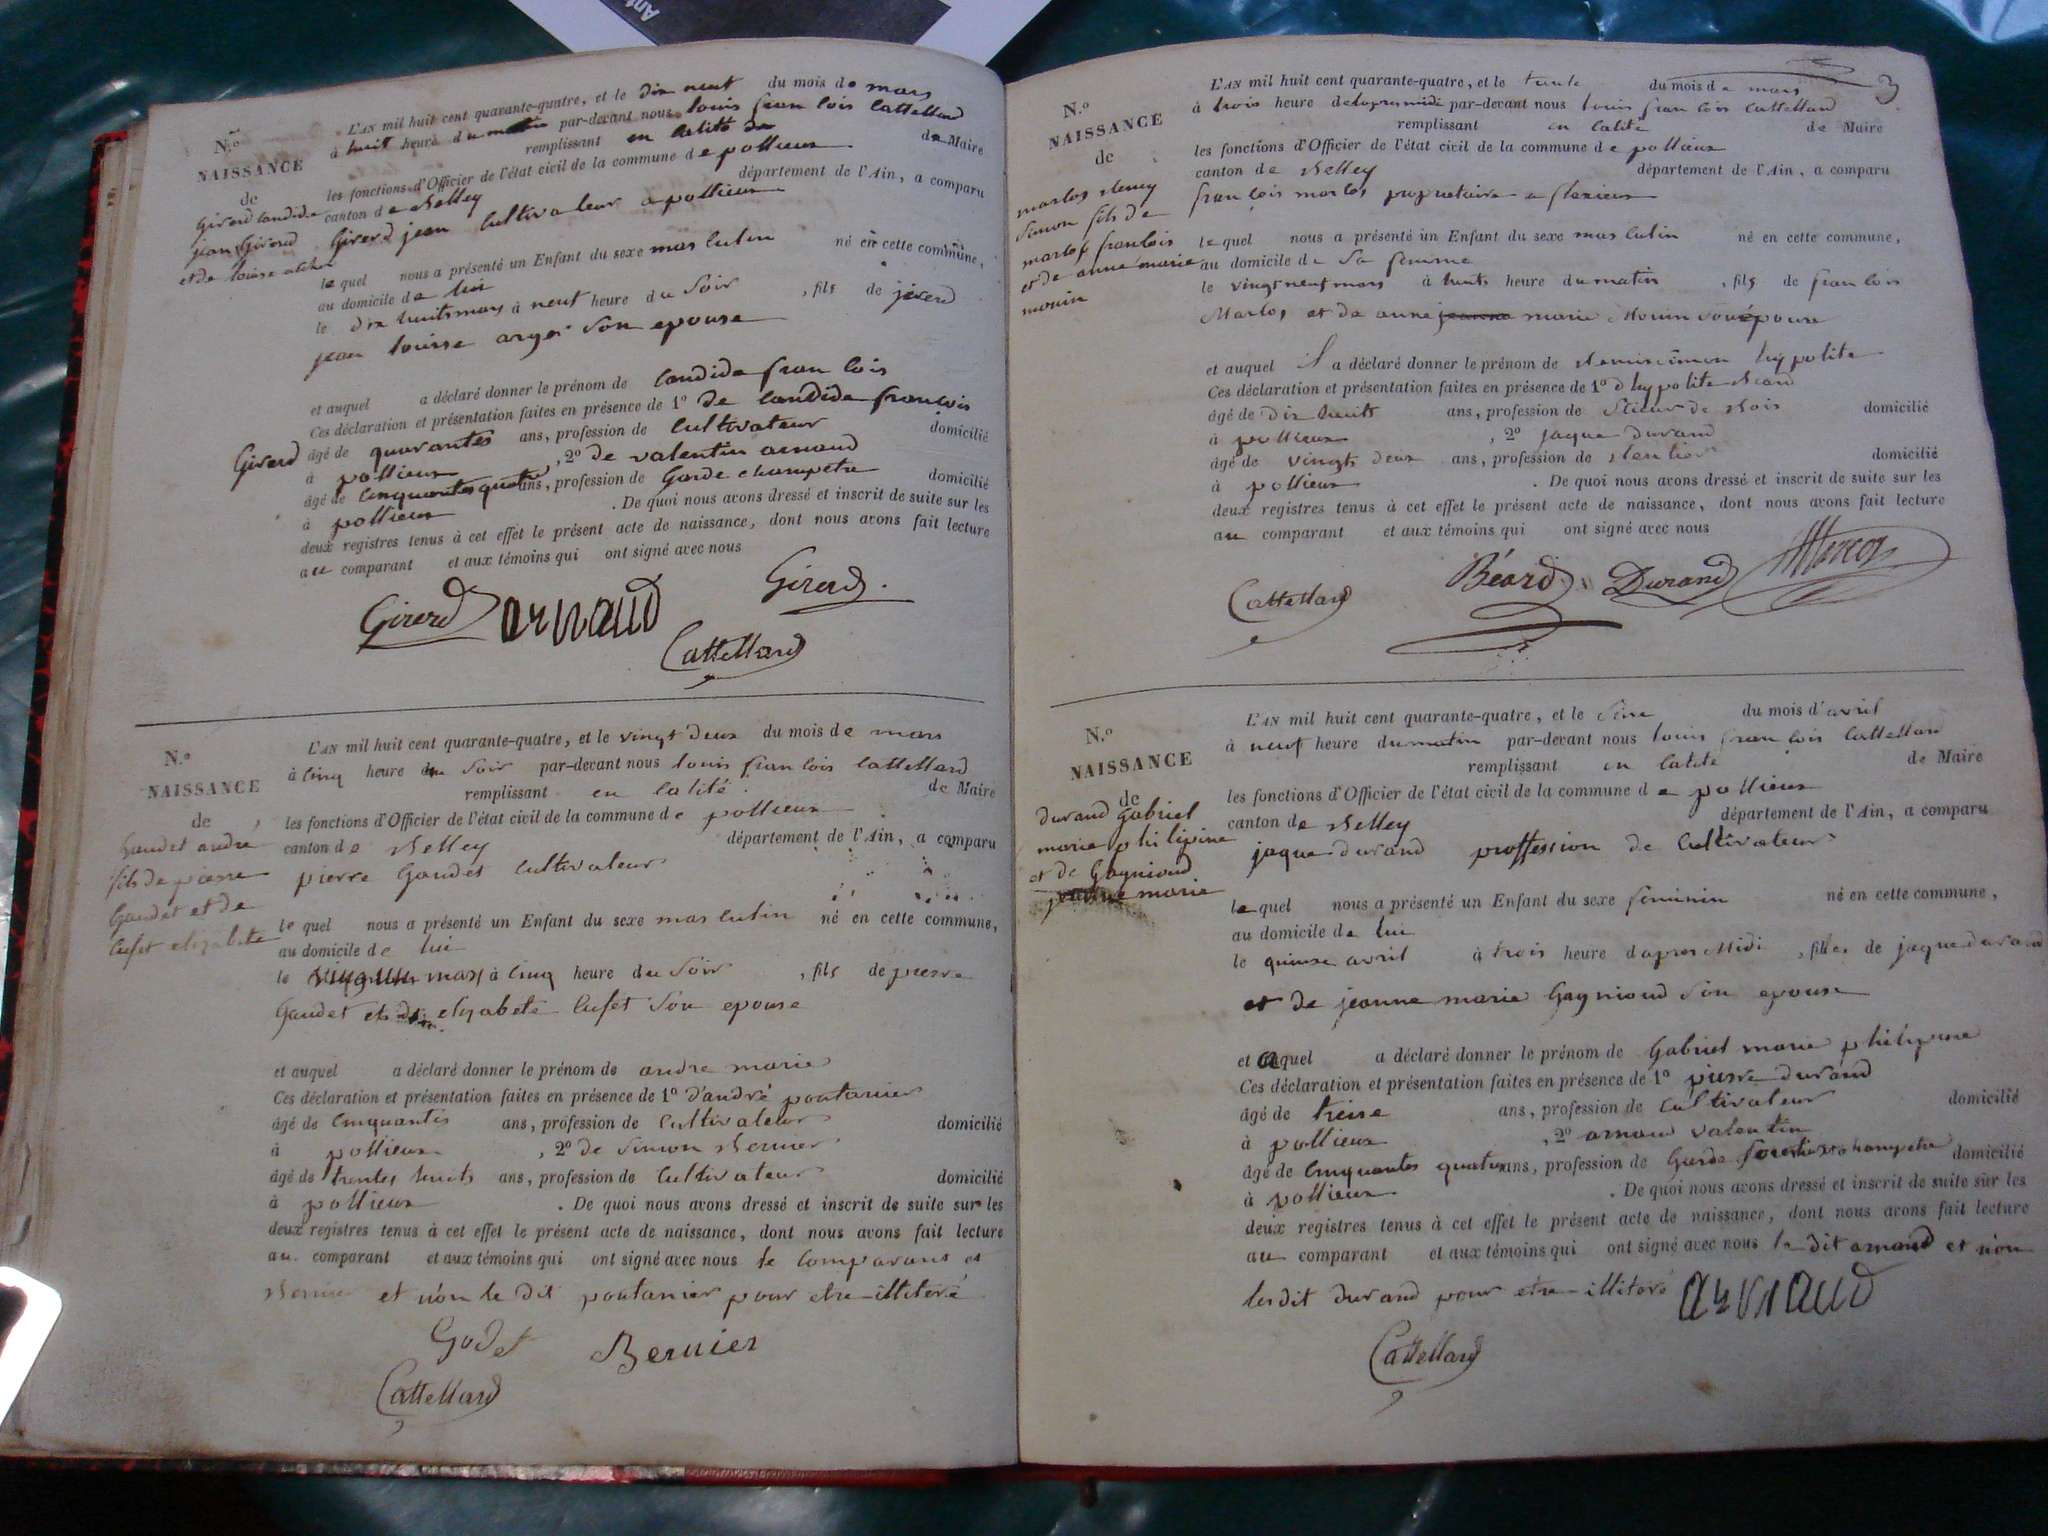 Ant
N.o
NAISSANCE
de
Girerd Candide
jean Girerd
et de louise
Girerd
L'AN mil huit cent quarante-quatre, et le dix neuf du mois de mars
à huit heure du matin par-devant nous louis francois Cattelland
remplissant en calité de de Maire
les fonctions d'Officier de l'état civil de la commune de pollieux
canton de Belley département de l'Ain, a comparu
Girerd jean cultivateur a pollieux
lequel nous a présenté un Enfant du sexe masculin né en cette commune,
au domicile de lui
le dix huits mars à neuf heure du soir, fils de jirerd
jean louisse son epouse
et auquel a déclaré donner le prénom de candide francois
Ces déclaration et présentation faites en présence de 1o de candide francois
âgé de quarantes ans, profession de cultivateur domicilié
à pollieux, 2o de valentin arnaud
âgé de cinquantes quatre ans, profession de Garde champetre domicilié
à pollieux. De quoi nous avons dressé et inscrit de suite sur les
deux registres tenus à cet effet le présent acte de naissance, dont nous avons fait lecture
au comparant et aux témoins qui ont signé avec nous
Girerd arnaud Girerd
Cattelland
N.o
NAISSANCE
de
Gaudet andré
fils de pierre
Gaudet et de
Cufet elizabete
L'AN mil huit cent quarante-quatre, et le vingt deux du mois de mars
à cinq heure du soir par-devant nous louis francois Cattelland
remplissant en calité de Maire
les fonctions d'Officier de l'état civil de la commune de pollieux
canton de Belley département de l'Ain, a comparu
pierre Gaudet cultivateur
lequel nous a présenté un Enfant du sexe masculin né en cette commune,
au domicile de lui
le mars à cinq heure du soir, fils de pierre
Gaudet et de elizabete Cufet son epouse
et auquel a déclaré donner le prénom de andre marie
Ces déclaration et présentation faites en présence de 1o d'andré pontanier
âgé de cinquantes ans, profession de cultivateur domicilié
à pollieux, 2o de simon Bernier
âgé de trentes huits ans, profession de cultivateur domicilié
à pollieux. De quoi nous avons dressé et inscrit de suite sur les
deux registres tenus à cet effet le présent acte de naissance, dont nous avons fait lecture
au comparant et aux témoins qui ont signé avec nous le comparant et
Bernier et non le dit pontanier pour etre illiteré
Godet Bernier
Cattelland
3
N.o
NAISSANCE
de
marlos
Simon fils de
marlos francois
et de anne marie
monin
L'AN mil huit cent quarante-quatre, et le trente du mois de mars
à trois heure delapremidi par-devant nous louis francois Cattelland
remplissant en calité de Maire
les fonctions d'Officier de l'état civil de la commune de pollieux
canton de Belley département de l'Ain, a comparu
francois marlos propriétaire a flaxieux
lequel nous a présenté un Enfant du sexe masculin né en cette commune,
au domicile de sa femme
le vingt neuf mars à huits heure du matin, fils de francois
Marlos et de anne jeanne marie Monin son épouse
et auquel il a déclaré donner le prénom de simon hypolite
Ces déclaration et présentation faites en présence de 1o d hypolite Beard
âgé de dix huits ans, profession de Scieur de Bois domicilié
à pollieux, 2o jaque durand
âgé de vingts deux ans, profession de domicilié
à pollieux. De quoi nous avons dressé et inscrit de suite sur les
deux registres tenus à cet effet le présent acte de naissance, dont nous avons fait lecture
au comparant et aux témoins qui ont signé avec nous
Cattelland Béard Durand
N.o
NAISSANCE
de
durand Gabriel
marie philipine
et de Gagnioud
jeanne marie
L'AN mil huit cent quarante-quatre, et le du mois d'avril
à neuf heure du matin par-devant nous louis francois Cattelland
remplissant en calité de Maire
les fonctions d'Officier de l'état civil de la commune de pollieux
canton de Belley département de l'Ain, a comparu
jaque durand proffession de cultivateur
lequel nous a présenté un Enfant du sexe feminin né en cette commune,
au domicile de lui
le quinse avril à trois heure d'apres Midi, filles de jaque durand
et de jeanne marie Gagnioud son epouse
et auquel a déclaré donner le prénom de Gabriel marie philipine
Ces déclaration et présentation faites en présence de 1o pierre durand
âgé de treise ans, profession de cultivateur domicilié
à pollieux, 2o arnaud valentin
âgé de cinquantes quatre ans, profession de Garde forestier champetre domicilié
à pollieux. De quoi nous avons dressé et inscrit de suite sur les
deux registres tenus à cet effet le présent acte de naissance, dont nous avons fait lecture
au comparant et aux témoins qui ont signé avec nous le dit arnaud et non
les dit durand pour etre illiteré arnaud
Cattelland